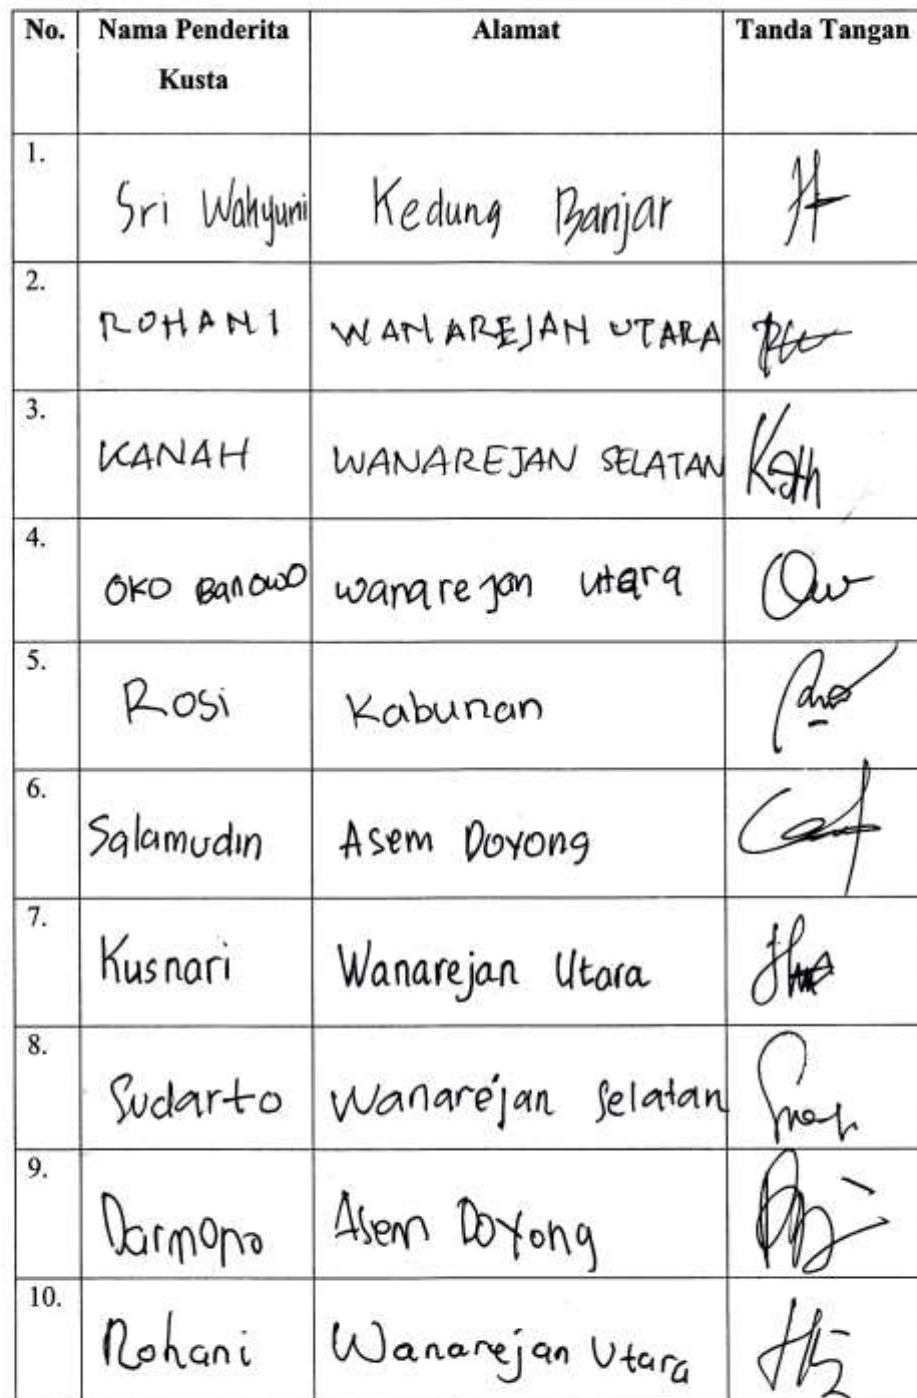 No. Nama Penderita Kusta Alamat Tanda Tangan
1. Sri Wahyuni Kedung Banjar
2. ROHANI WANAREJAN UTARA
3. KANAH WANAREJAN SELATAN
4. OKO BANOWO wanarejan utara
5. Rosi Kabunan
6. Salamudin Asem Doyong
7. Kusnari Wanarejan Utara
8. Sudarto Wanarejan Selatan
9. Asem Doyong
10. Rohani Wanarejan Utara